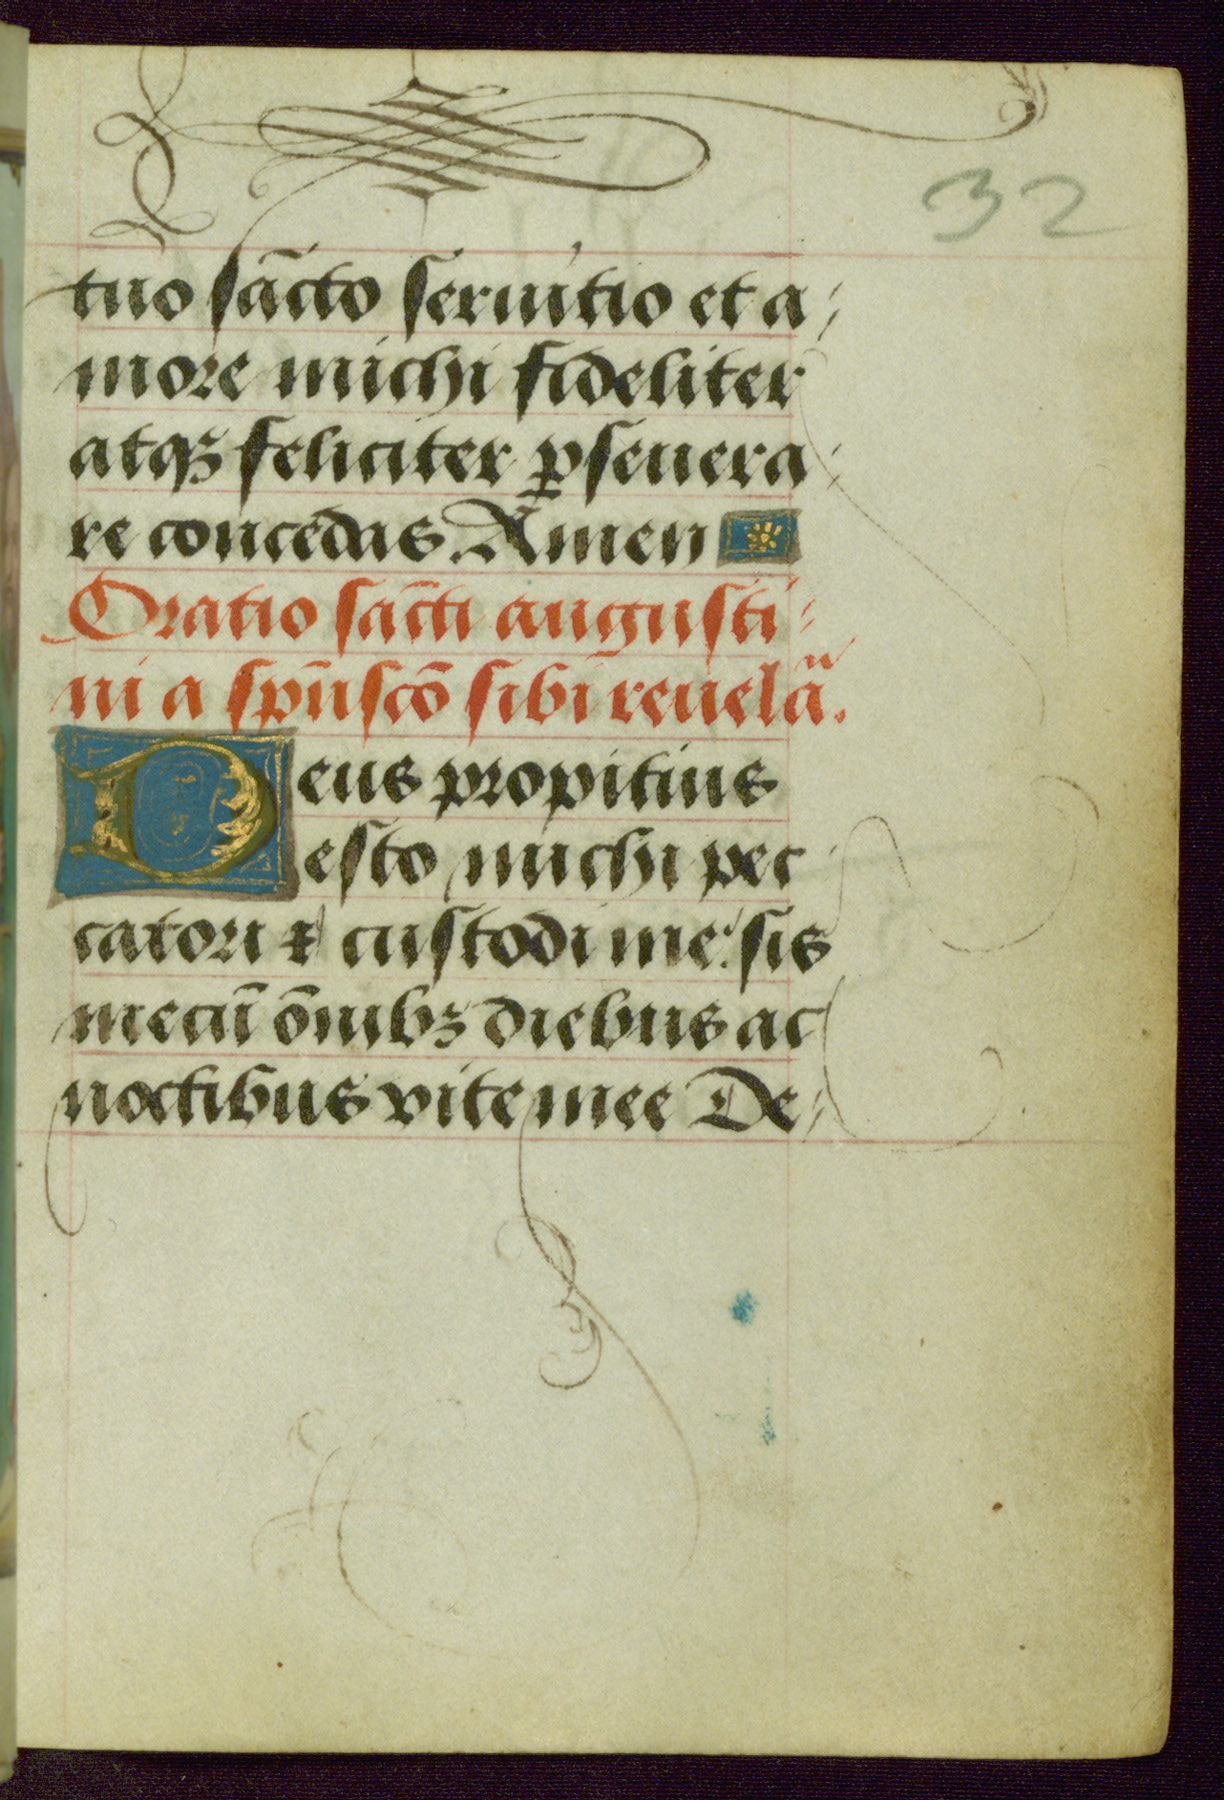 32
tuo sācto seruitio et a⸗
more michi fideliter
atqꝫ feliciter ꝑseuera⸗
re concedas. Amen
Oratio sācti augusti⸗
ni a spūscō sibi reuelaͣ.
Deus propitius
esto michi pec⸗
catori ⁊ custodi me: sis
mecū ōnibꝫ diebus ac
noctibus vite mee De⸗